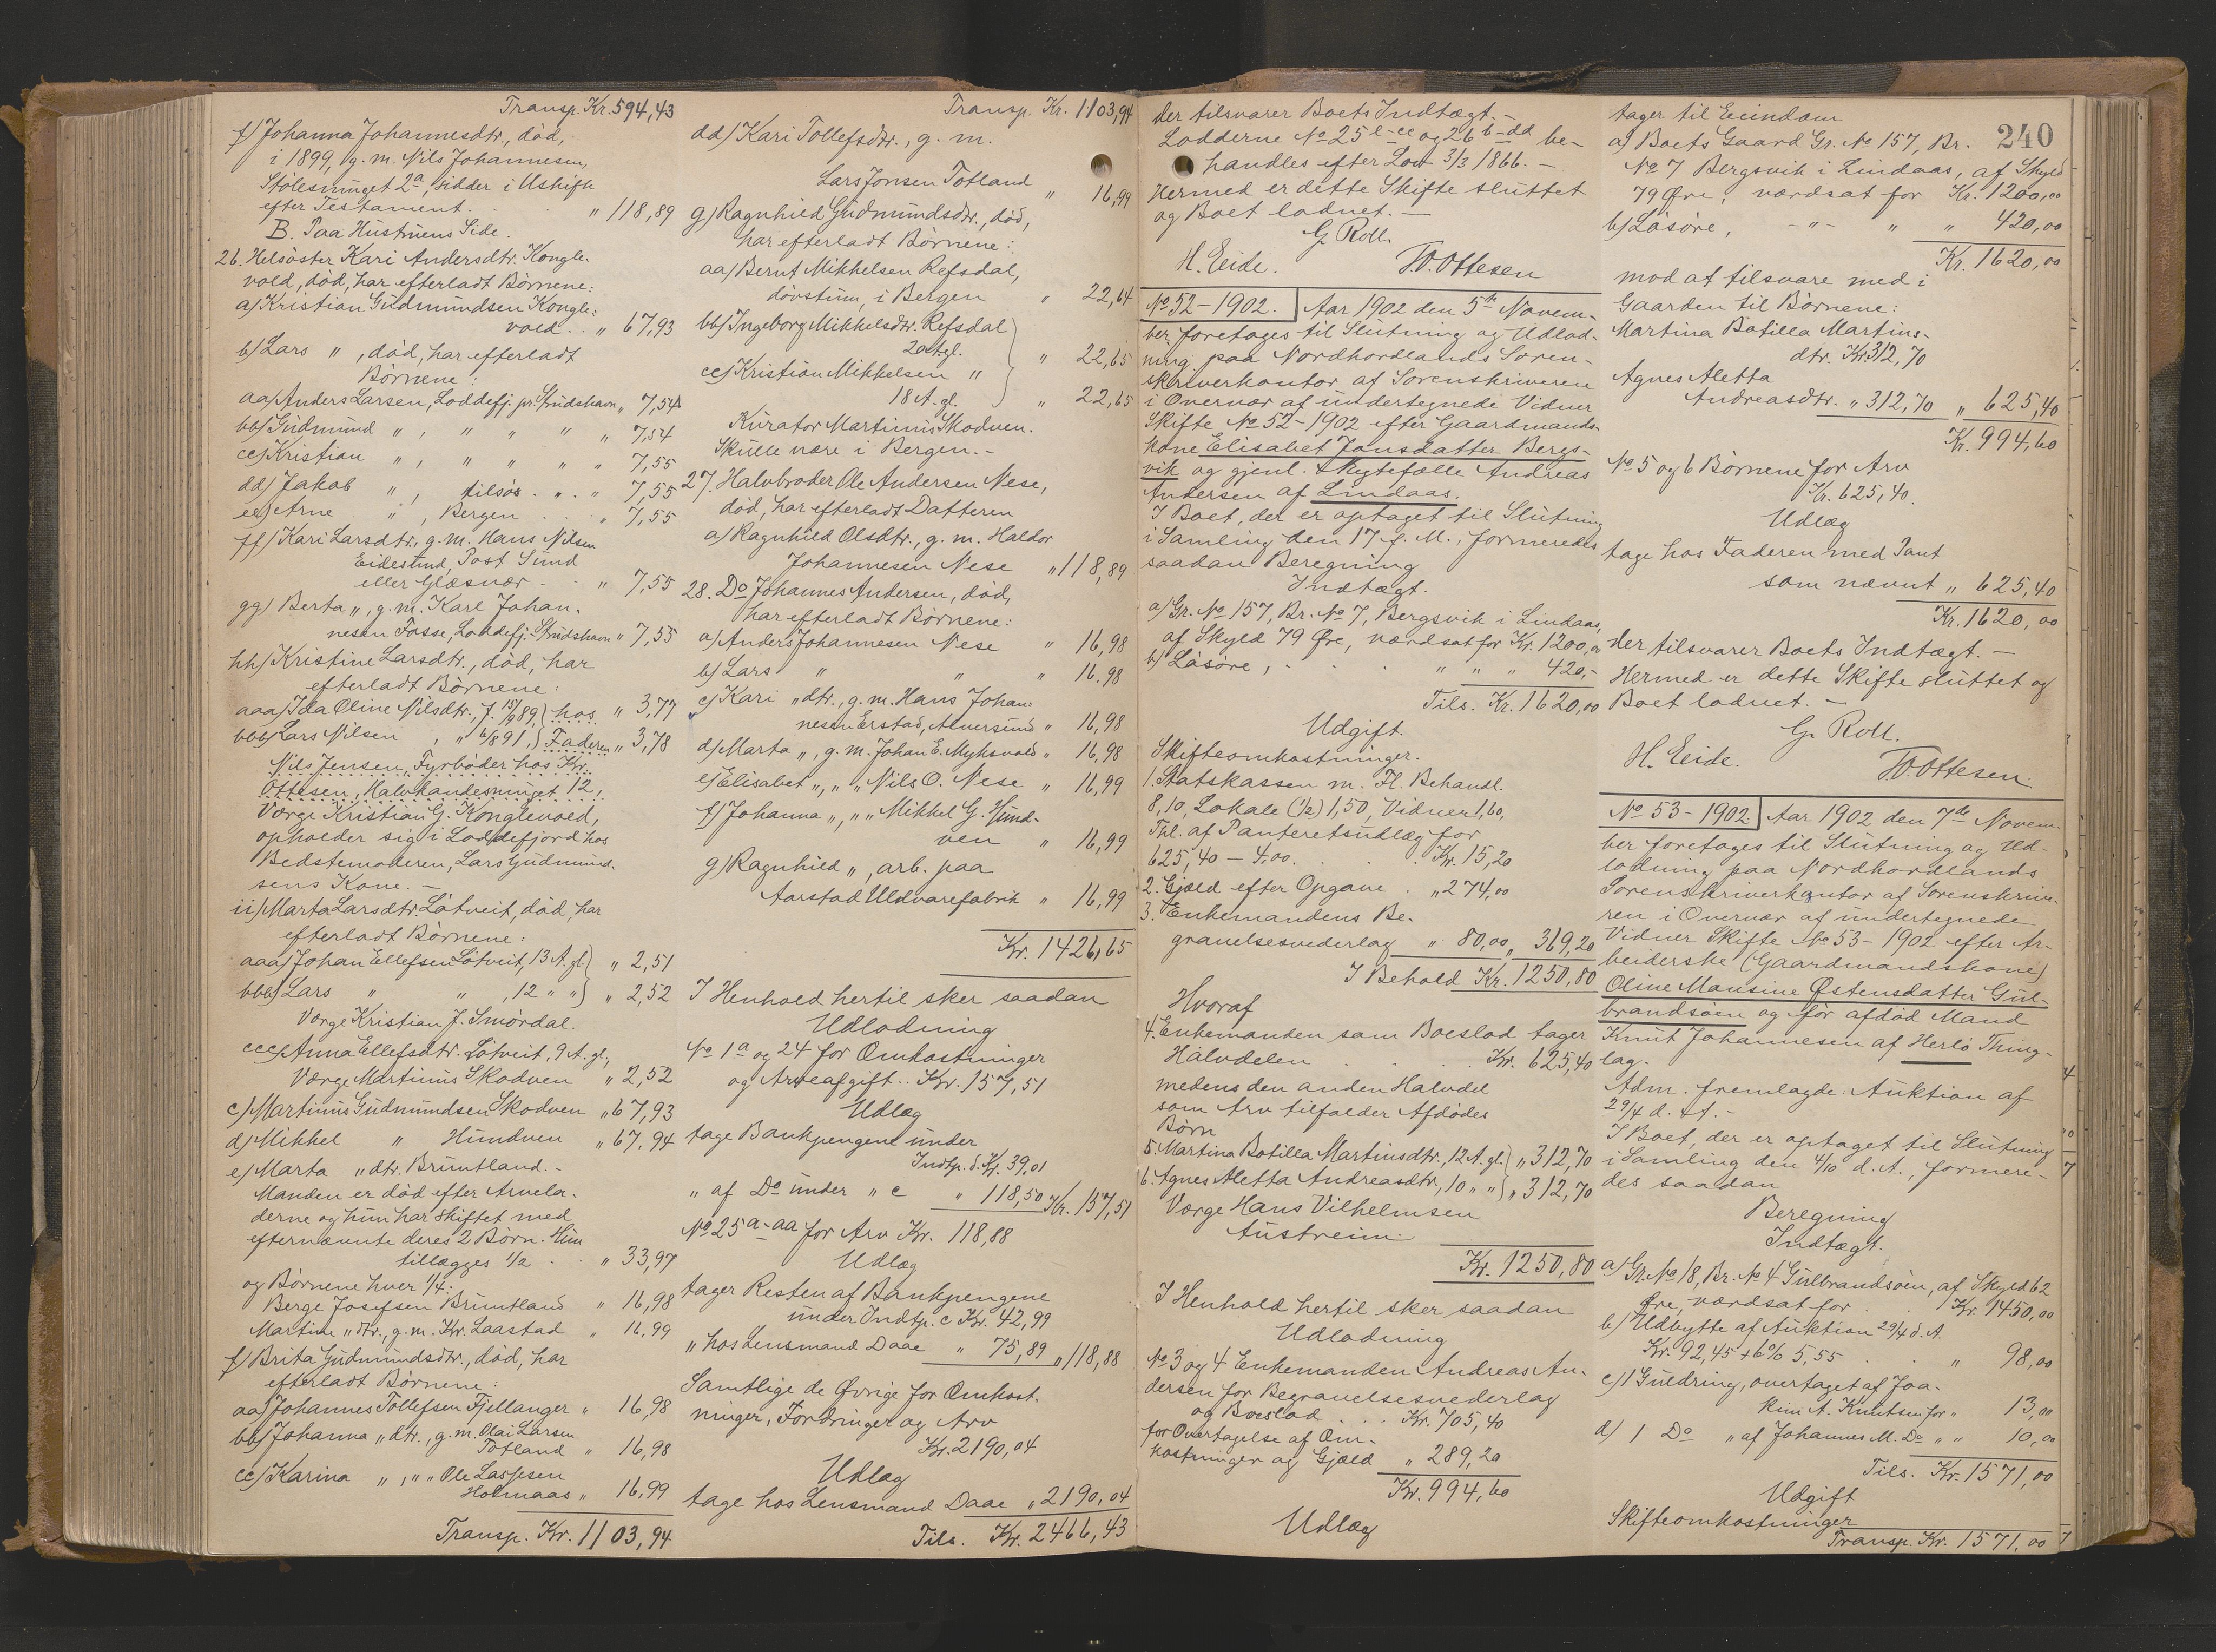 Transp. Kr. 594,43
f) Johanna Johannesdtr., død,
i 1899, g. m. Nils Johannesen,
Stølesmuget 2a, sidder i Uskifte
efter Testament. " 118,89
B. Paa Hustruens Side.
26. Helsöster Kari Andersdtr. Kongle-
vold, död, har efterladt Børnene:
a) Kristian Gudmundsen Kongle-
vold. . " 67,93
b) Lars ", død, har efterladt
Børnene:
aa) Anders Larsen, Loddefj. pr. Strudshavn " 7,54
bb) Gudmund ", " " " " 7,54
cc) Kristian ", " " " " 7,55
dd) Jakob ", tilsös. " . " 7,55
ee) Arne ", Bergen . . " 7,55
ff) Kari Larsdtr., g. m. Hans Nilsen
Eidesund, Post Sund
eller Glæsvær . . " 7,55
gg) Berta ", g. m. Karl Johan-
nesen Fosse, Loddefj. Strudshavn " 7,55
hh) Kristine Larsdtr., död, har
efterladt Børnene:
aaa) Ida Oline Nilsdtr., f. 15/9 89, } hos " 3,77
bbb) Lars Nilsen , " 6/8 91, } Faderen " 3,78
Nils Jensen, Fyrböder hos Kr.
Ottesen, Halvkandesmuget 12,
Værge Kristian G. Konglevold,
opholder sig i Loddefjord hos
Bedstemoderen, Lars Gudmund-
sens Kone. –
ii) Marta Larsdtr. Låtveit, död, har
efterladt Børnene:
aaa) Johan Ellefsen Låtveit, 13 A. gl. } " 2,51
bbb) Lars " " , 12 " " } " 2,52
Værge Kristian J. Smördal.
ccc) Anna Ellefsdtr. Låtveit, 9 A. gl.,
Værge Martinus Skodven " 2,52
c) Martinus Gudmundsen Skodven " 67,93
d) Mikkel " Hundven " 67,94
e) Marta " dtr. Bruntland. –
Manden er död efter Arvela-
derne og hun har skiftet med
efternævnte deres 2 Börn. Hun
tillægges 1/2 . . " 33,97
og Børnene hver 1/4:
Berge Josefsen Bruntland " 16,98
Martine " dtr., g. m. Kr. Laastad " 16,99
f) Brita Gudmundsdtr., död, har
efterladt Børnene:
aa) Johannes Tollefsen Fjellanger " 16,98
bb) Johanna " dtr., g. m. Olai Larsen
Totland " 16,98
cc) Karina " , " " Ole Lassesen
Holmaas " 16,99
Transp. Kr. 1103,94
Transp. Kr. 1103,94
dd) Kari Tollefsdtr., g. m.
Lars Jonsen Totland " 16,99
g) Ragnhild Gudmundsdtr., död,
har efterladt Børnene:
aa) Bernt Mikkelsen Refsdal,
dövstum, i Bergen " 22,64
bb) Ingeborg Mikkelsdtr. Refsdal
20 A. gl. " 22,65
cc) Kristian Mikkelsen "
18 A. gl. " 22,65
Kurator Martinus Skodven.
Skulle være i Bergen. –
27. Halvbroder Ole Andersen Nese,
död, har efterladt Datteren
a) Ragnhild Olsdtr., g. m. Haldor
Johannesen Nese " 118,89
28. Do Johannes Andersen, död,
har efterladt Børnene:
a) Anders Johannesen Nese " 16,98
b) Lars " " " 16,98
c) Kari " dtr., g. m. Hans Johan-
nesen Erstad, Alversund " 16,98
d) Marta " , g. m. Johan E. Myksvold " 16,98
e) Elisabet " , " " Nils O. Nese " 16,99
f) Johanna " , " " Mikkel G. Hund-
ven " 16,99
g) Ragnhild " , arb. paa
Aarstad Uldvarefabrik " 16,99
Kr. 1426,65
I Henhold hertil sker saadan
Udlodning
No 1a og 24 for Omkostninger
og Arveafgift . . Kr. 157,51
Udlæg
tage Bankpengene under
Indtp. d. Kr. 39,01
" af Do under " c " 118,50 Kr. 157,51
No 25 a-aa for Arv Kr. 118,88
Udlæg
tager Resten af Bankpengene
under Indtp. c Kr. 42,99
" hos Lensmand Daae " 75,89 " 118,88
Samtlige de Øvrige for Omkost-
ninger, Fordringer og Arv
Kr. 2190,04
Udlæg
tage hos Lensmand Daae " 2190,04
Tils. Kr. 2466,43
der tilsvarer Boets Indtægt. –
Lodderne No 25 l-cc og 26 b-dd be-
handles efter Lov 3/3 1866. –
Hermed er dette Skifte sluttet
og Boet lodnet. –
G. Roll.
H. Eide. Th. Ottesen
No 52 – 1902. Aar 1902 den 5te Novem-
ber foretoges til Slutning og Udlod-
ning paa Nordhordlands Soren-
skriverkontor af Sorenskriveren
i Overvær af undertegnede Vidner
Skifte No 52 – 1902 efter Gaardmands-
kone Elisabet Jonsdatter Bergs-
vik og gjenl. Ægtefælle Andreas
Andersen af Lindaas.
I Boet, der er optaget til Slutning
i Samling den 17 f. M., formeredes
saadan Beregning
Indtægt.
a) Gr. No 157, Br. No 7, Bergsvik i Lindaas,
af Skyld 79 Øre, værdsat for Kr. 1200,00
b) Läsöre, . . . " " " 420,–
Tils. Kr. 1620,00
Udgift.
Skifteomkostninger.
1. Statskassen m. Fl. Behandl.
8,10, Lokale (1/2) 1,50, Vidner 1,60,
Thl. af Panteretsudlæg for
625,40 – 4,00. . . . Kr. 15,20
2. Gjæld efter Opgave . " 274,00
3. Enkemandens Be-
gravelsesvederlag " 80,00 " 369,20
I Behold Kr. 1250,80
Hvoraf
4. Enkemanden som Boeslod tager
Halvdelen . . . Kr. 625,40
medens den anden Halvdel
som Arv tilfalder Afdödes
Børn
5. Martina Botilla Martinsdtr., 12 A. gl. } " 312,70
6. Agnes Aletta Andreasdtr., 10 " " } " 312,70
Værge Hans Vilhelmsen
Austreim.
Kr. 1250,80
I Henhold hertil sker saadan
Udlodning
No 3 og 4 Enkemanden Andreas An-
dersen for Begravelsesvederlag
og Boeslod . . . Kr. 705,40
for Overtagelse af Om-
kostninger og Gjæld " 289,20
Kr. 994,60
Udlæg
240
tager til Eiendom
a) Boets Gaard Gr. No 157, Br.
No 7 Bergsvik i Lindaas, af Skyld
79 Øre, værdsat for Kr. 1200,00
b) Läsöre, –"– " " 420,00
Kr. 1620,00
mod at tilsvare med i
Gaarden til Børnene:
Martina Botilla Martins-
dtr. Kr. 312,70
Agnes Aletta
Andreasdtr. " 312,70 " 625,40
Kr. 994,60
No 5 og 6 Børnene for Arv
Kr. 625,40.
Udlæg
tage hos Faderen med Pant
som nævnt " 625,40
Kr. 1620,00
der tilsvarer Boets Indtægt. –
Hermed er dette Skifte sluttet og
Boet lodnet. –
G. Roll.
H. Eide. Th. Ottesen.
No 53 – 1902. Aar 1902 den 7de Novem-
ber foretoges til Slutning og Ud-
lodning paa Nordhordlands
Sorenskriverkontor af Sorenskrive-
ren i Overvær af undertegnede
Vidner Skifte No 53 – 1902 efter Ar-
beiderske (Gaardmandskone)
Oline Mansine Østensdatter Gul-
brandsöen og för afdöd Mand
Knut Johannesen af Herlö Thing-
lag.
Adm. fremlagde: Auktion af
29/4 d. A. –
I Boet, der er optaget til Slutning
i Samling den 4/10 d. A., formere-
des saadan
Beregning
Indtægt.
a) Gr. No 18, Br. No 4 Gulbrandsöen, af Skyld 62
Øre, værdsat for . . Kr. 1450,00
b) Udbytte af Auktion 29/4 d. A.
Kr. 92,45 + 6% 5,55 . . " 98,00
c) 1 Guldring, overtaget af Joa-
kim A. Knutsen for " 13,00
d) 1 Do " af Johannes M. Do " " 10,00
Tils. Kr. 1571,00
Udgift
Skifteomkostninger
Transp. Kr. 1571,00